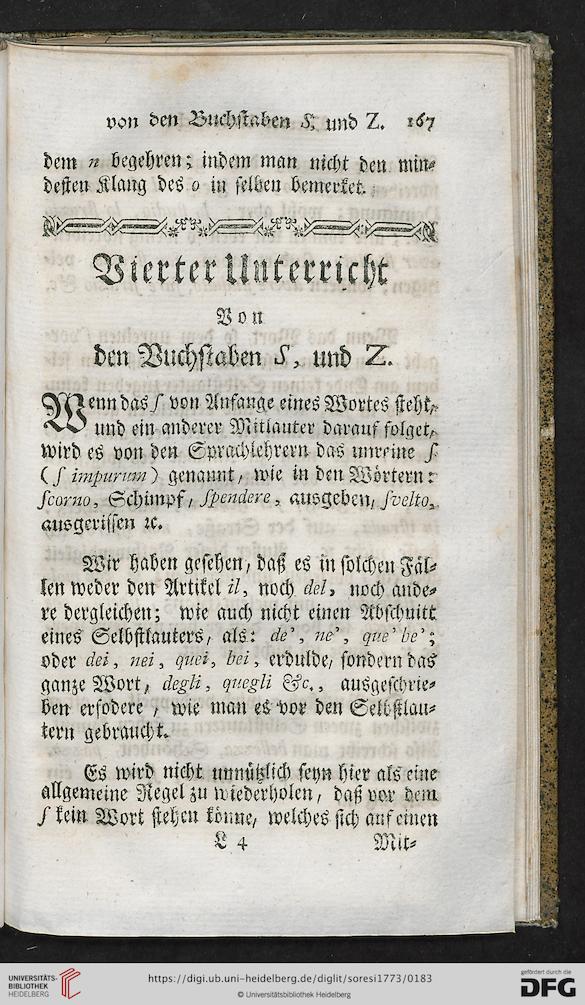 von den Buchstaben S, und Z. 167
dem n begehren; indem man nicht den min-
desten Klang des o in selben bemerket.
Vierter Unterricht
Von
den Buchstaben S, und Z.
Wenn das ſ von Anfange eines Wortes steht,
und ein anderer Mitlauter darauf folget,
wird es von den Sprachlehrern das unreine ſ
(ſ impurum) genannt, wie in den Wörtern:
ſcorno, Schimpf, ſpendere, ausgeben, ſvelto,
ausgerissen ꝛc.
Wir haben gesehen, daß es in solchen Fäl-
len weder den Artikel il, noch del, noch ande-
re dergleichen; wie auch nicht einen Abschnitt
eines Selbstlauters, als: de', ne', que' be';
oder dei, nei, quei, bei, erdulde, sondern das
ganze Wort, degli, quegli &c., ausgeschrie-
ben erfodere, wie man es vor den Selbstlau-
tern gebraucht.
Es wird nicht unnützlich seyn hier als eine
allgemeine Regel zu wiederholen, daß vor dem
ſ kein Wort stehen könne, welches sich auf einen
L 4 Mit-
UNIVERSITÄTS-
BIBLIOTHEK
HEIDELBERG
https://digi.ub.uni-heidelberg.de/diglit/soresi1773/0183
© Universitätsbibliothek Heidelberg
gefördert durch die
DFG